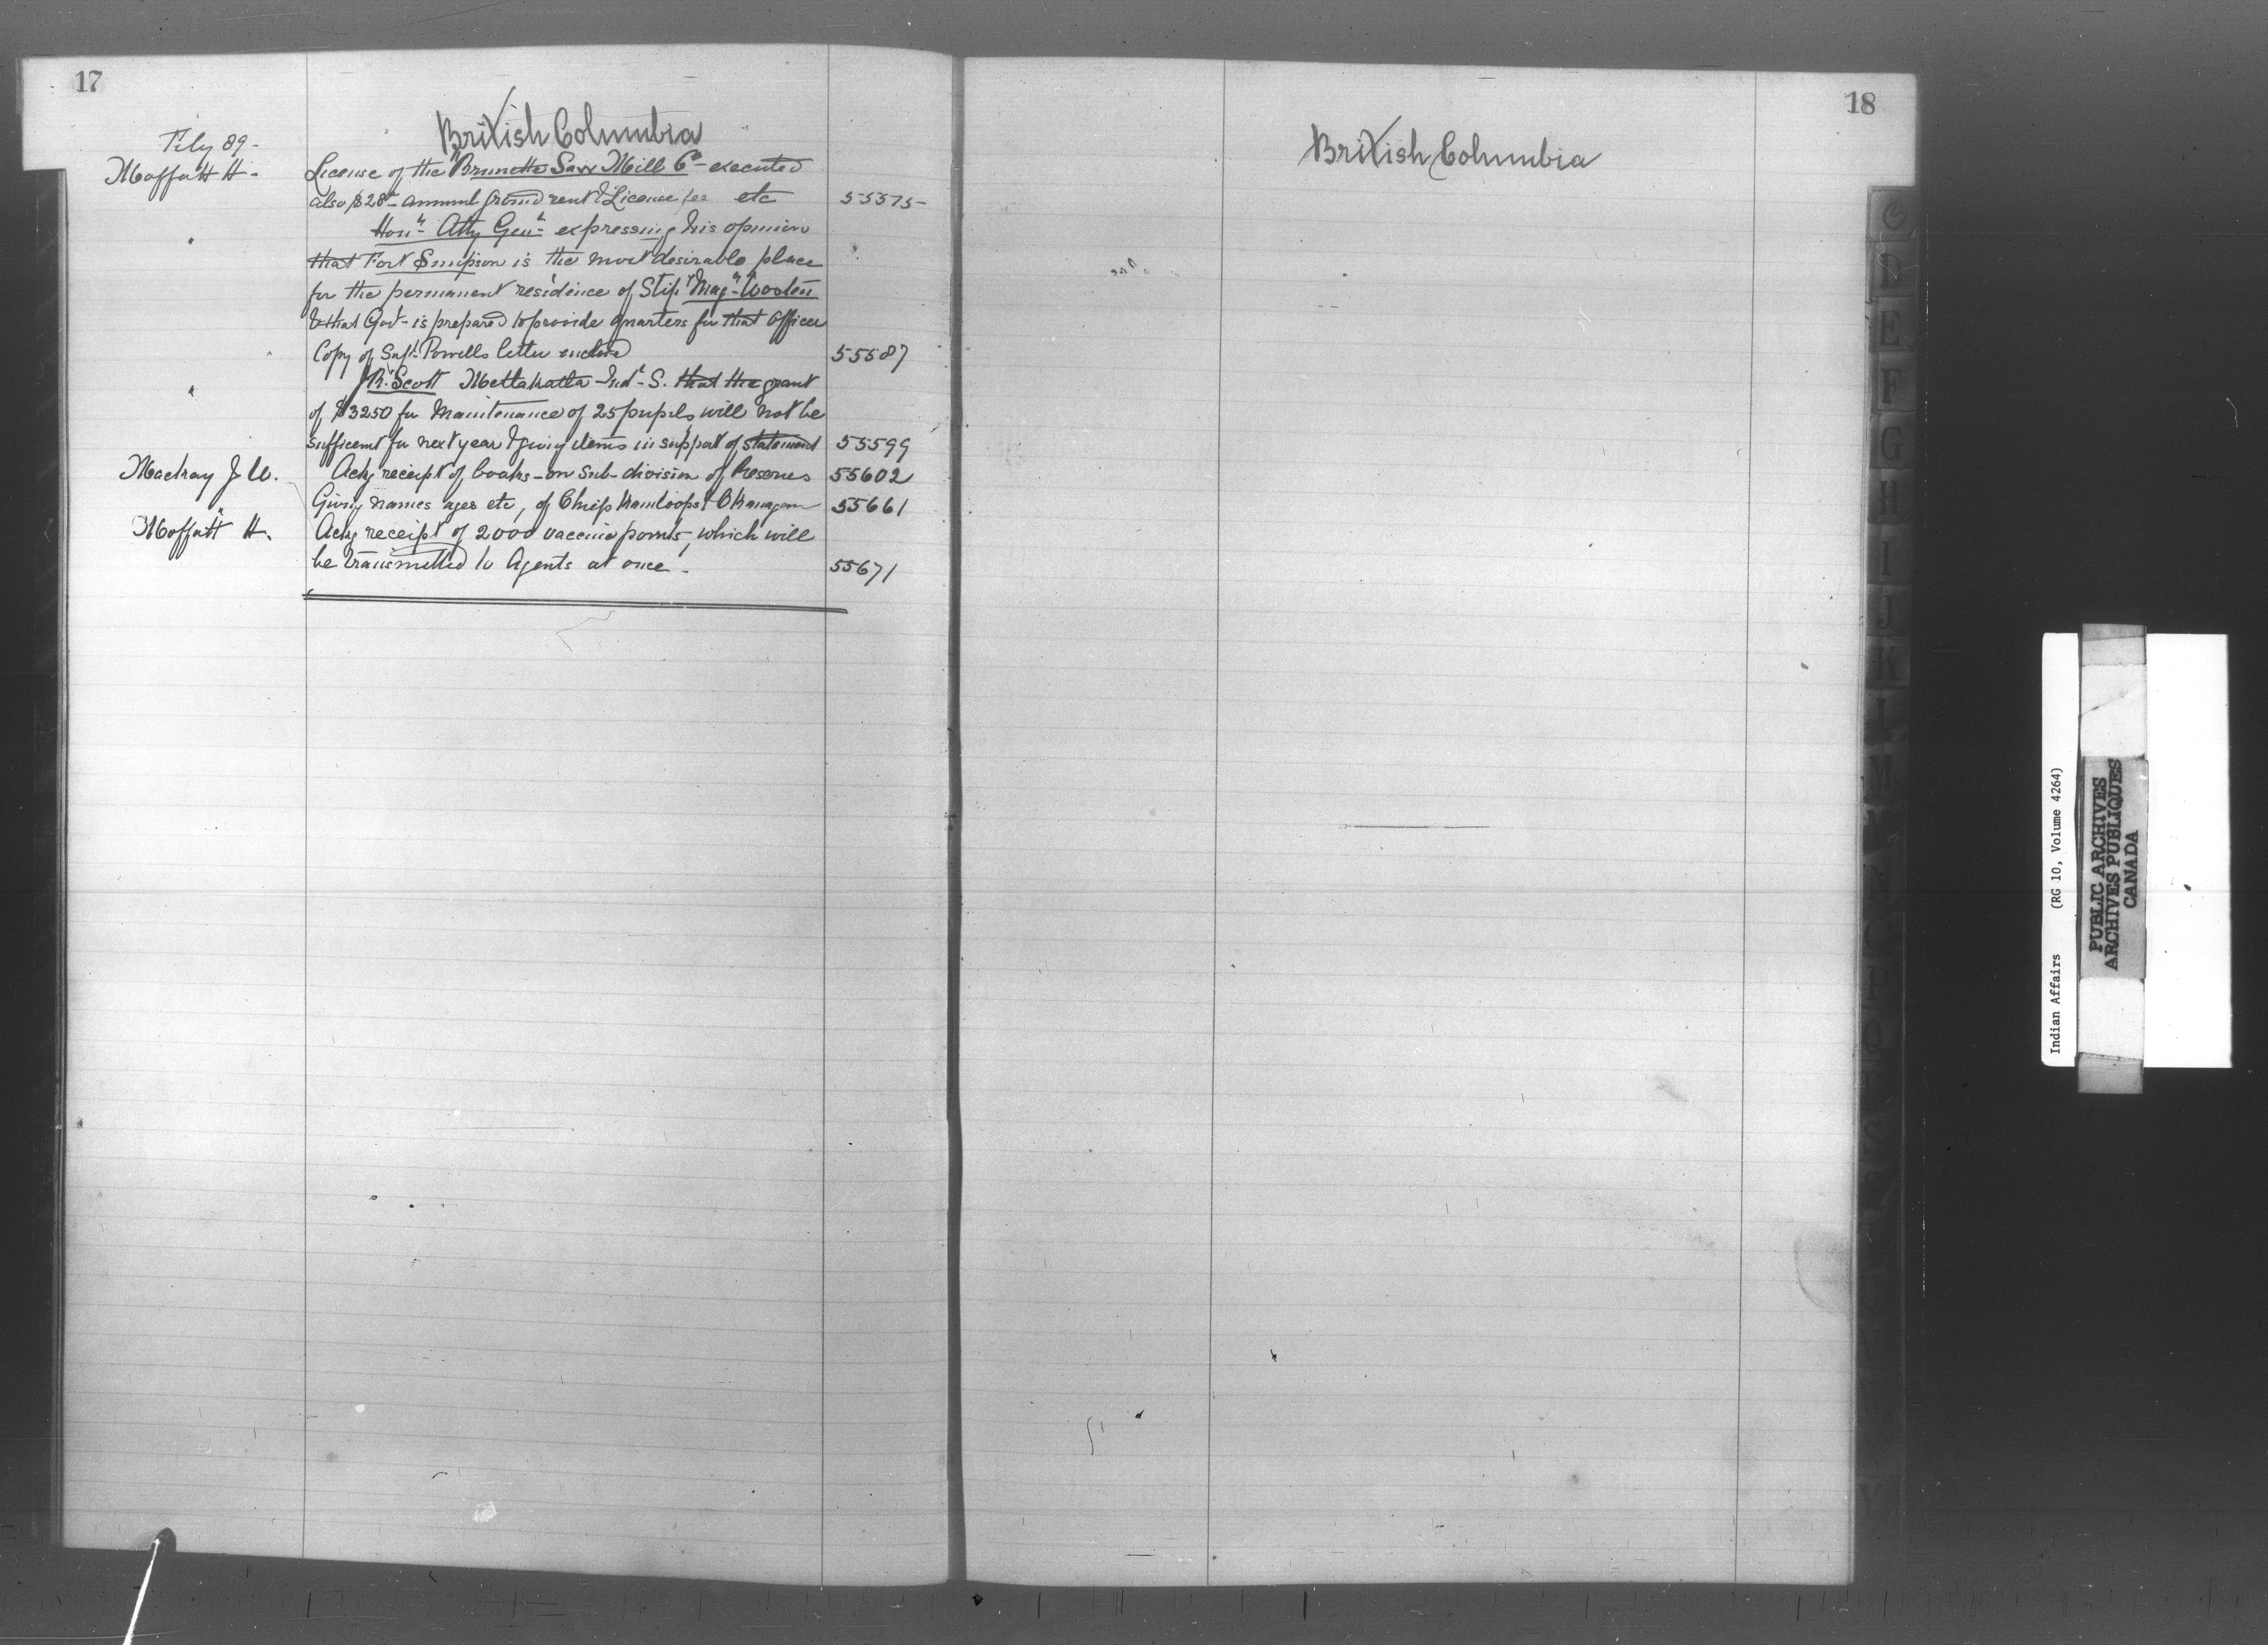 17
British Columbia
Feby 89 -
Moffatt H -
License of the Brunette Saw Mill Co - executed
also $28 - annual ground rent & License fee etc
55575 -
"
Honr. Atty Genl - expressing his opinion
that Fort Simpson is the most desirable place
for the permanent residence of Stip. Mag.
& that Govt - is prepared to provide quarters for that Officer
Copy of Supt. Powells letter enclosed
55587
"
R. Scott Metlakatla Ind. S. that the grant
of $3250 for Maintenance of 25 pupils will not be
sufficent for next year & giving items in support of statement
55599
Mackay J W.
Ackg receipt of books - on Sub-division of Reserves
55602
"
Giving names ages etc, of Chiefs Kamloops & Okanagan
55661
Moffatt H.
Ackg receipt of 2000 vaccine points, which will
be transmitted to Agents at once -
55671
18
British Columbia
C
D
E
F
G
H
I
J
K
L
M
Indian Affairs (RG 10, Volume 4264)
PUBLIC ARCHIVES
ARCHIVES PUBLIQUES
CANADA